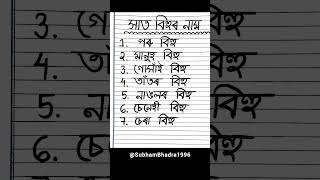 সাত বিহুৰ নাম
1. গৰু বিহু
2. মানুহ বিহু
3. গোসাঁই বিহু
4. তাঁতৰ বিহু
5. নাঙলৰ বিহু
6. চেনেহী বিহু
7. চেৰা বিহু
@SubhamBhadra1996